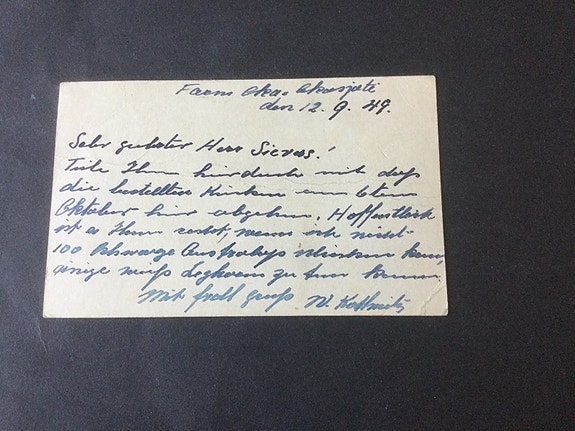 Farm Oka
den 12. 9. 49.
Sehr geehrter Herr Sievers!
Teile Ihnen hierdurch mit daß
die bestellten Kücken am 6ten
Oktober hier abgehen. Hoffentlich
ist es Ihnen recht, wenn ich nicht
100 schwarze Australops schicken kann,
einige weiß Leghorn zu tun kann.
Mit frdl gruß W.